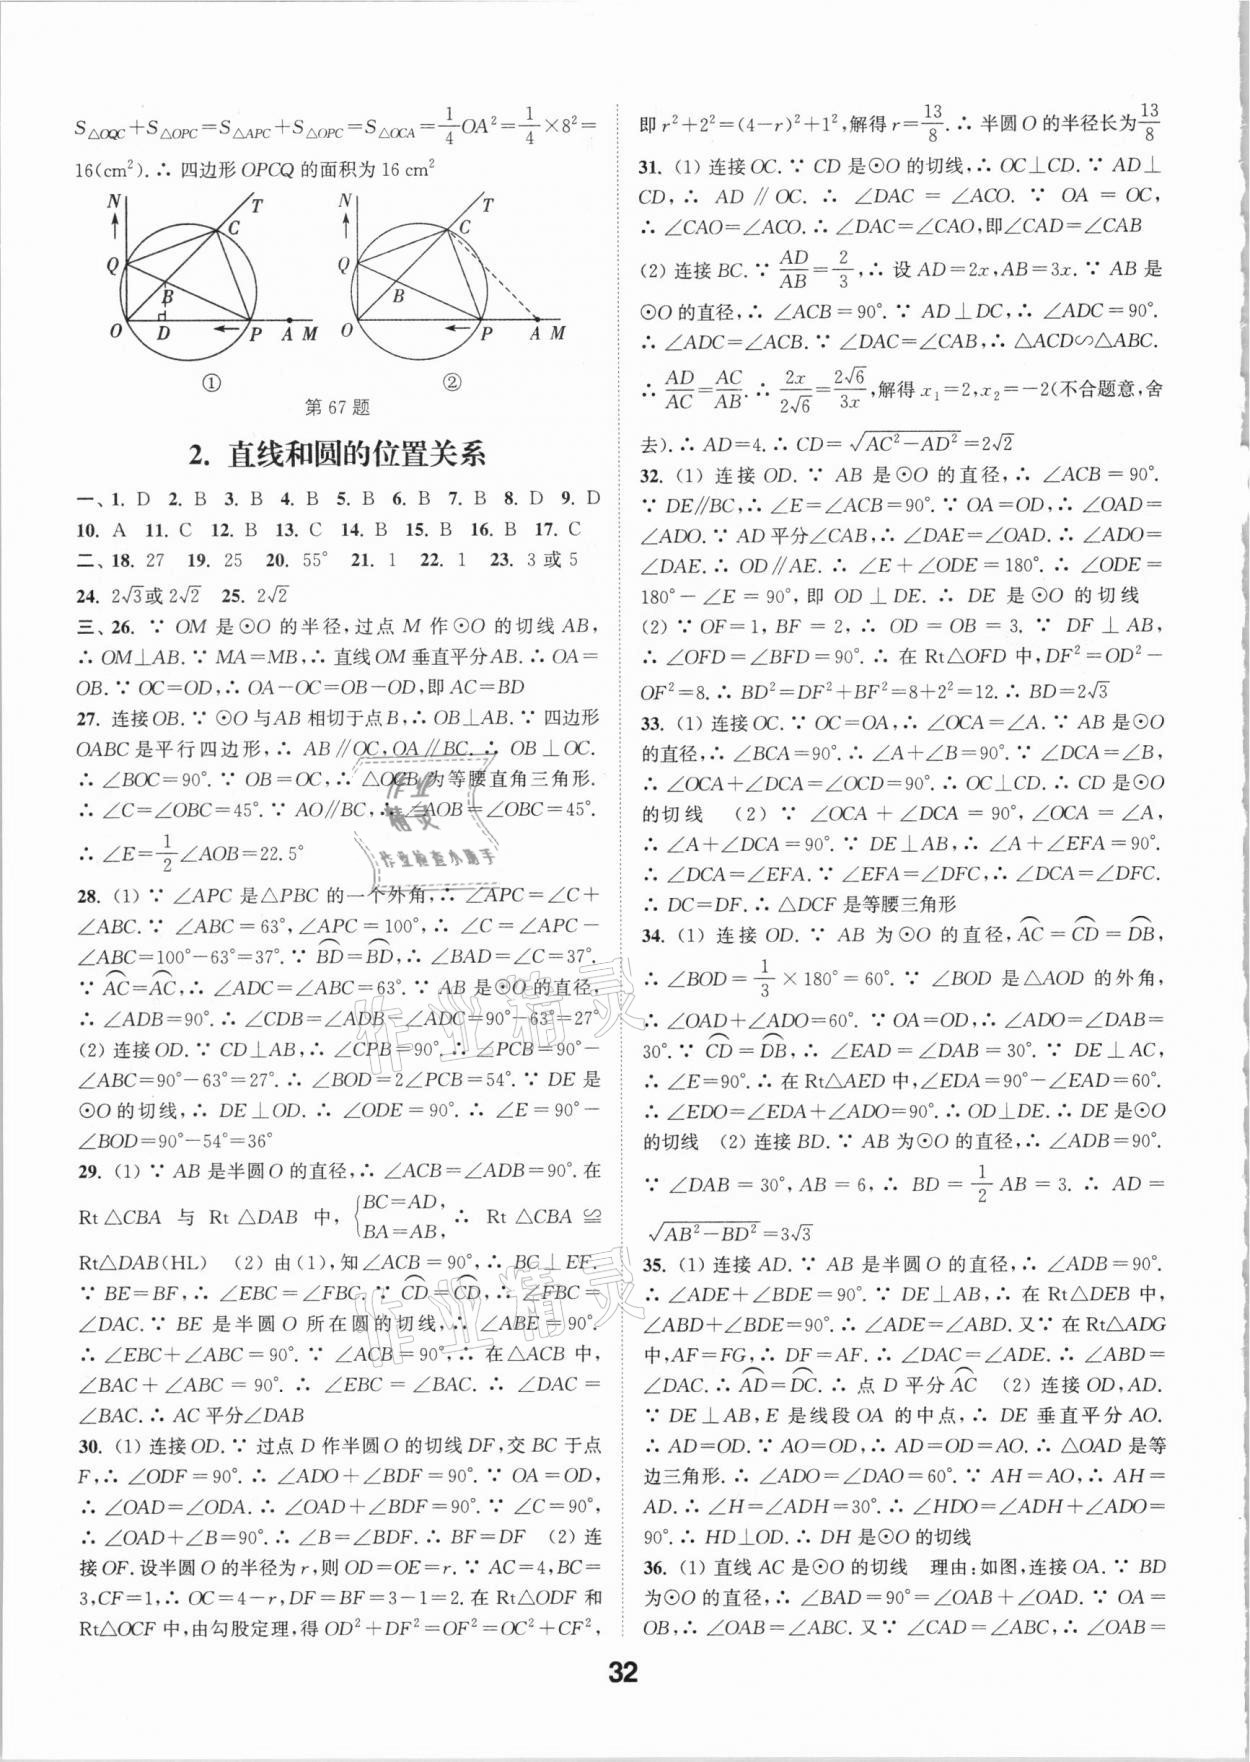 S△OQC+S△OPC=S△APC+S△OPC=S△OCA=1/4OA²=1/4×8²=
16(cm²).∴ 四边形OPCQ的面积为16 cm²
N T N T
C C
Q Q
B B
O D P A M O P A M
① ②
第67题
2. 直线和圆的位置关系
一、1. D 2. B 3. B 4. B 5. B 6. B 7. B 8. D 9. D
10. A 11. C 12. B 13. C 14. B 15. B 16. B 17. C
二、18. 27 19. 25 20. 55° 21. 1 22. 1 23. 3或5
24. 2√3或2√2 25. 2√2
三、26. ∵ OM是⊙O的半径,过点M作⊙O的切线AB,
∴ OM⊥AB.∵ MA=MB,∴ 直线OM垂直平分AB.∴ OA=
OB.∵ OC=OD,∴ OA-OC=OB-OD,即AC=BD
27. 连接OB.∵ ⊙O与AB相切于点B,∴ OB⊥AB.∵ 四边形
OABC是平行四边形,∴ AB∥OC,OA∥BC.∴ OB⊥OC.
∴ ∠BOC=90°.∵ OB=OC,∴ △OCB为等腰直角三角形.
∴ ∠C=∠OBC=45°.∵ AO∥BC,∴ ∠AOB=∠OBC=45°.
∴ ∠E=1/2∠AOB=22.5°
28. (1) ∵ ∠APC是△PBC的一个外角,∴ ∠APC=∠C+
∠ABC.∵ ∠ABC=63°,∠APC=100°,∴ ∠C=∠APC-
∠ABC=100°-63°=37°.∵ BD⌒=BD⌒,∴ ∠BAD=∠C=37°.
∵ AC⌒=AC⌒,∴ ∠ADC=∠ABC=63°.∵ AB是⊙O的直径,
∴ ∠ADB=90°.∴ ∠CDB=∠ADB-∠ADC=90°-63°=27°
(2) 连接OD.∵ CD⊥AB,∴ ∠CPB=90°.∴ ∠PCB=90°-
∠ABC=90°-63°=27°.∴ ∠BOD=2∠PCB=54°.∵ DE是
⊙O的切线,∴ DE⊥OD.∴ ∠ODE=90°.∴ ∠E=90°-
∠BOD=90°-54°=36°
29. (1) ∵ AB是半圆O的直径,∴ ∠ACB=∠ADB=90°.在
Rt△CBA与Rt△DAB中,{BC=AD, BA=AB, ∴ Rt△CBA≌
Rt△DAB(HL) (2) 由(1),知∠ACB=90°,∴ BC⊥EF.
∵ BE=BF,∴ ∠EBC=∠FBC.∵ CD⌒=CD⌒,∴ ∠FBC=
∠DAC.∵ BE是半圆O所在圆的切线,∴ ∠ABE=90°.
∴ ∠EBC+∠ABC=90°.∵ ∠ACB=90°,∴ 在△ACB中,
∠BAC+∠ABC=90°.∴ ∠EBC=∠BAC.∴ ∠DAC=
∠BAC.∴ AC平分∠DAB
30. (1) 连接OD.∵ 过点D作半圆O的切线DF,交BC于点
F,∴ ∠ODF=90°.∴ ∠ADO+∠BDF=90°.∵ OA=OD,
∴ ∠OAD=∠ODA.∴ ∠OAD+∠BDF=90°.∵ ∠C=90°,
∴ ∠OAD+∠B=90°.∴ ∠B=∠BDF.∴ BF=DF (2) 连
接OF.设半圆O的半径为r,则OD=OE=r.∵ AC=4,BC=
3,CF=1,∴ OC=4-r,DF=BF=3-1=2.在Rt△ODF和
Rt△OCF中,由勾股定理,得OD²+DF²=OF²=OC²+CF²,
即r²+2²=(4-r)²+1²,解得r=13/8.∴ 半圆O的半径长为13/8
31. (1) 连接OC.∵ CD是⊙O的切线,∴ OC⊥CD.∵ AD⊥
CD,∴ AD∥OC.∴ ∠DAC=∠ACO.∵ OA=OC,
∴ ∠CAO=∠ACO.∴ ∠DAC=∠CAO,即∠CAD=∠CAB
(2) 连接BC.∵ AD/AB=2/3,∴ 设AD=2x,AB=3x.∵ AB是
⊙O的直径,∴ ∠ACB=90°.∵ AD⊥DC,∴ ∠ADC=90°.
∴ ∠ADC=∠ACB.∵ ∠DAC=∠CAB,∴ △ACD∽△ABC.
∴ AD/AC=AC/AB.∴ 2x/2√6=2√6/3x,解得x₁=2,x₂=-2(不合题意,舍
去).∴ AD=4.∴ CD=√(AC²-AD²)=2√2
32. (1) 连接OD.∵ AB是⊙O的直径,∴ ∠ACB=90°.
∵ DE∥BC,∴ ∠E=∠ACB=90°.∵ OA=OD,∴ ∠OAD=
∠ADO.∵ AD平分∠CAB,∴ ∠DAE=∠OAD.∴ ∠ADO=
∠DAE.∴ OD∥AE.∴ ∠E+∠ODE=180°.∴ ∠ODE=
180°-∠E=90°,即OD⊥DE.∴ DE是⊙O的切线
(2) ∵ OF=1,BF=2,∴ OD=OB=3.∵ DF⊥AB,
∴ ∠OFD=∠BFD=90°.∴ 在Rt△OFD中,DF²=OD²-
OF²=8.∴ BD²=DF²+BF²=8+2²=12.∴ BD=2√3
33. (1) 连接OC.∵ OC=OA,∴ ∠OCA=∠A.∵ AB是⊙O
的直径,∴ ∠BCA=90°.∴ ∠A+∠B=90°.∵ ∠DCA=∠B,
∴ ∠OCA+∠DCA=∠OCD=90°.∴ OC⊥CD.∴ CD是⊙O
的切线 (2) ∵ ∠OCA+∠DCA=90°,∠OCA=∠A,
∴ ∠A+∠DCA=90°.∵ DE⊥AB,∴ ∠A+∠EFA=90°.
∴ ∠DCA=∠EFA.∵ ∠EFA=∠DFC,∴ ∠DCA=∠DFC.
∴ DC=DF.∴ △DCF是等腰三角形
34. (1) 连接OD.∵ AB为⊙O的直径,AC⌒=CD⌒=DB⌒,
∴ ∠BOD=1/3×180°=60°.∵ ∠BOD是△AOD的外角,
∴ ∠OAD+∠ADO=60°.∵ OA=OD,∴ ∠ADO=∠DAB=
30°.∵ CD⌒=DB⌒,∴ ∠EAD=∠DAB=30°.∵ DE⊥AC,
∴ ∠E=90°.∴ 在Rt△AED中,∠EDA=90°-∠EAD=60°.
∴ ∠EDO=∠EDA+∠ADO=90°.∴ OD⊥DE.∴ DE是⊙O
的切线 (2) 连接BD.∵ AB为⊙O的直径,∴ ∠ADB=90°.
∵ ∠DAB=30°,AB=6,∴ BD=1/2AB=3.∴ AD=
√(AB²-BD²)=3√3
35. (1) 连接AD.∵ AB是半圆O的直径,∴ ∠ADB=90°.
∴ ∠ADE+∠BDE=90°.∵ DE⊥AB,∴ 在Rt△DEB中,
∠ABD+∠BDE=90°.∴ ∠ADE=∠ABD.又∵ 在Rt△ADG
中,AF=FG,∴ DF=AF.∴ ∠DAC=∠ADE.∴ ∠ABD=
∠DAC.∴ AD⌒=DC⌒.∴ 点D平分AC⌒ (2) 连接OD,AD.
∵ DE⊥AB,E是线段OA的中点,∴ DE垂直平分AO.
∴ AD=OD.∵ AO=OD,∴ AD=OD=AO.∴ △OAD是等
边三角形.∴ ∠ADO=∠DAO=60°.∵ AH=AO,∴ AH=
AD.∴ ∠H=∠ADH=30°.∴ ∠HDO=∠ADH+∠ADO=
90°.∴ HD⊥OD.∴ DH是⊙O的切线
36. (1) 直线AC是⊙O的切线 理由:如图,连接OA.∵ BD
为⊙O的直径,∴ ∠BAD=90°=∠OAB+∠OAD.∵ OA=
OB,∴ ∠OAB=∠ABC.又∵ ∠CAD=∠ABC,∴ ∠OAB=
32
作业精灵
作业检查小助手
作业精灵
作业精灵